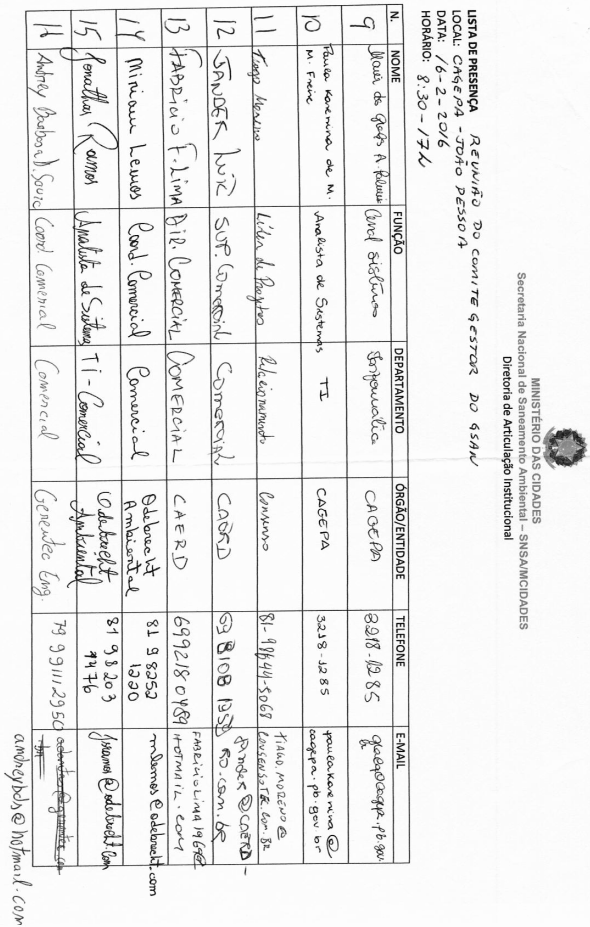 MINISTÉRIO DAS CIDADES
Secretaria Nacional de Saneamento Ambiental – SNSA/MCIDADES
Diretoria de Articulação Institucional
LISTA DE PRESENÇA REUNIÃO DO COMITE GESTOR DO GSAN
LOCAL: CAGEPA - JOÃO PESSOA
DATA: 16-2-2016
HORÁRIO: 8:30 - 17h
N. NOME FUNÇÃO DEPARTAMENTO ÓRGÃO/ENTIDADE TELEFONE E-MAIL
9 das A. Informática CAGEPA 3218-1285
10 Paula Karenina de M. Analista de Sistemas TI CAGEPA 3218-1285 paulakarenina@
M. Freire cagepa.pb.gov.br
11 Tiago Moreno Líder de Projetos Relacionamento Consenso 81-98644-5068 TIAGO.MORENO@
CONSENSOTEC.COM.BR
12 JANDER LUIZ SUP. Comercial Comercial CAERD 69 8108 1958 Jander@CAERD-
RO.com.br
13 FABRICIO F. LIMA DIR. COMERCIAL COMERCIAL CAERD 6992180489 FABRICIOLIMA1969@
HOTMAIL.COM
14 Miriam Lemos Coord. Comercial Comercial Odebrecht 81 98252 mlemos@odebrecht.com
Ambiental 1220
15 Jonathas Ramos Analista de Sistema TI - Comercial Odebrecht 81 98203 jramos@odebrecht.com
Ambiental 4476
16 Andrey Barbosa D. Coord Comercial Comercial Generitec Eng. 79 99111 2950
andreybds@hotmail.com